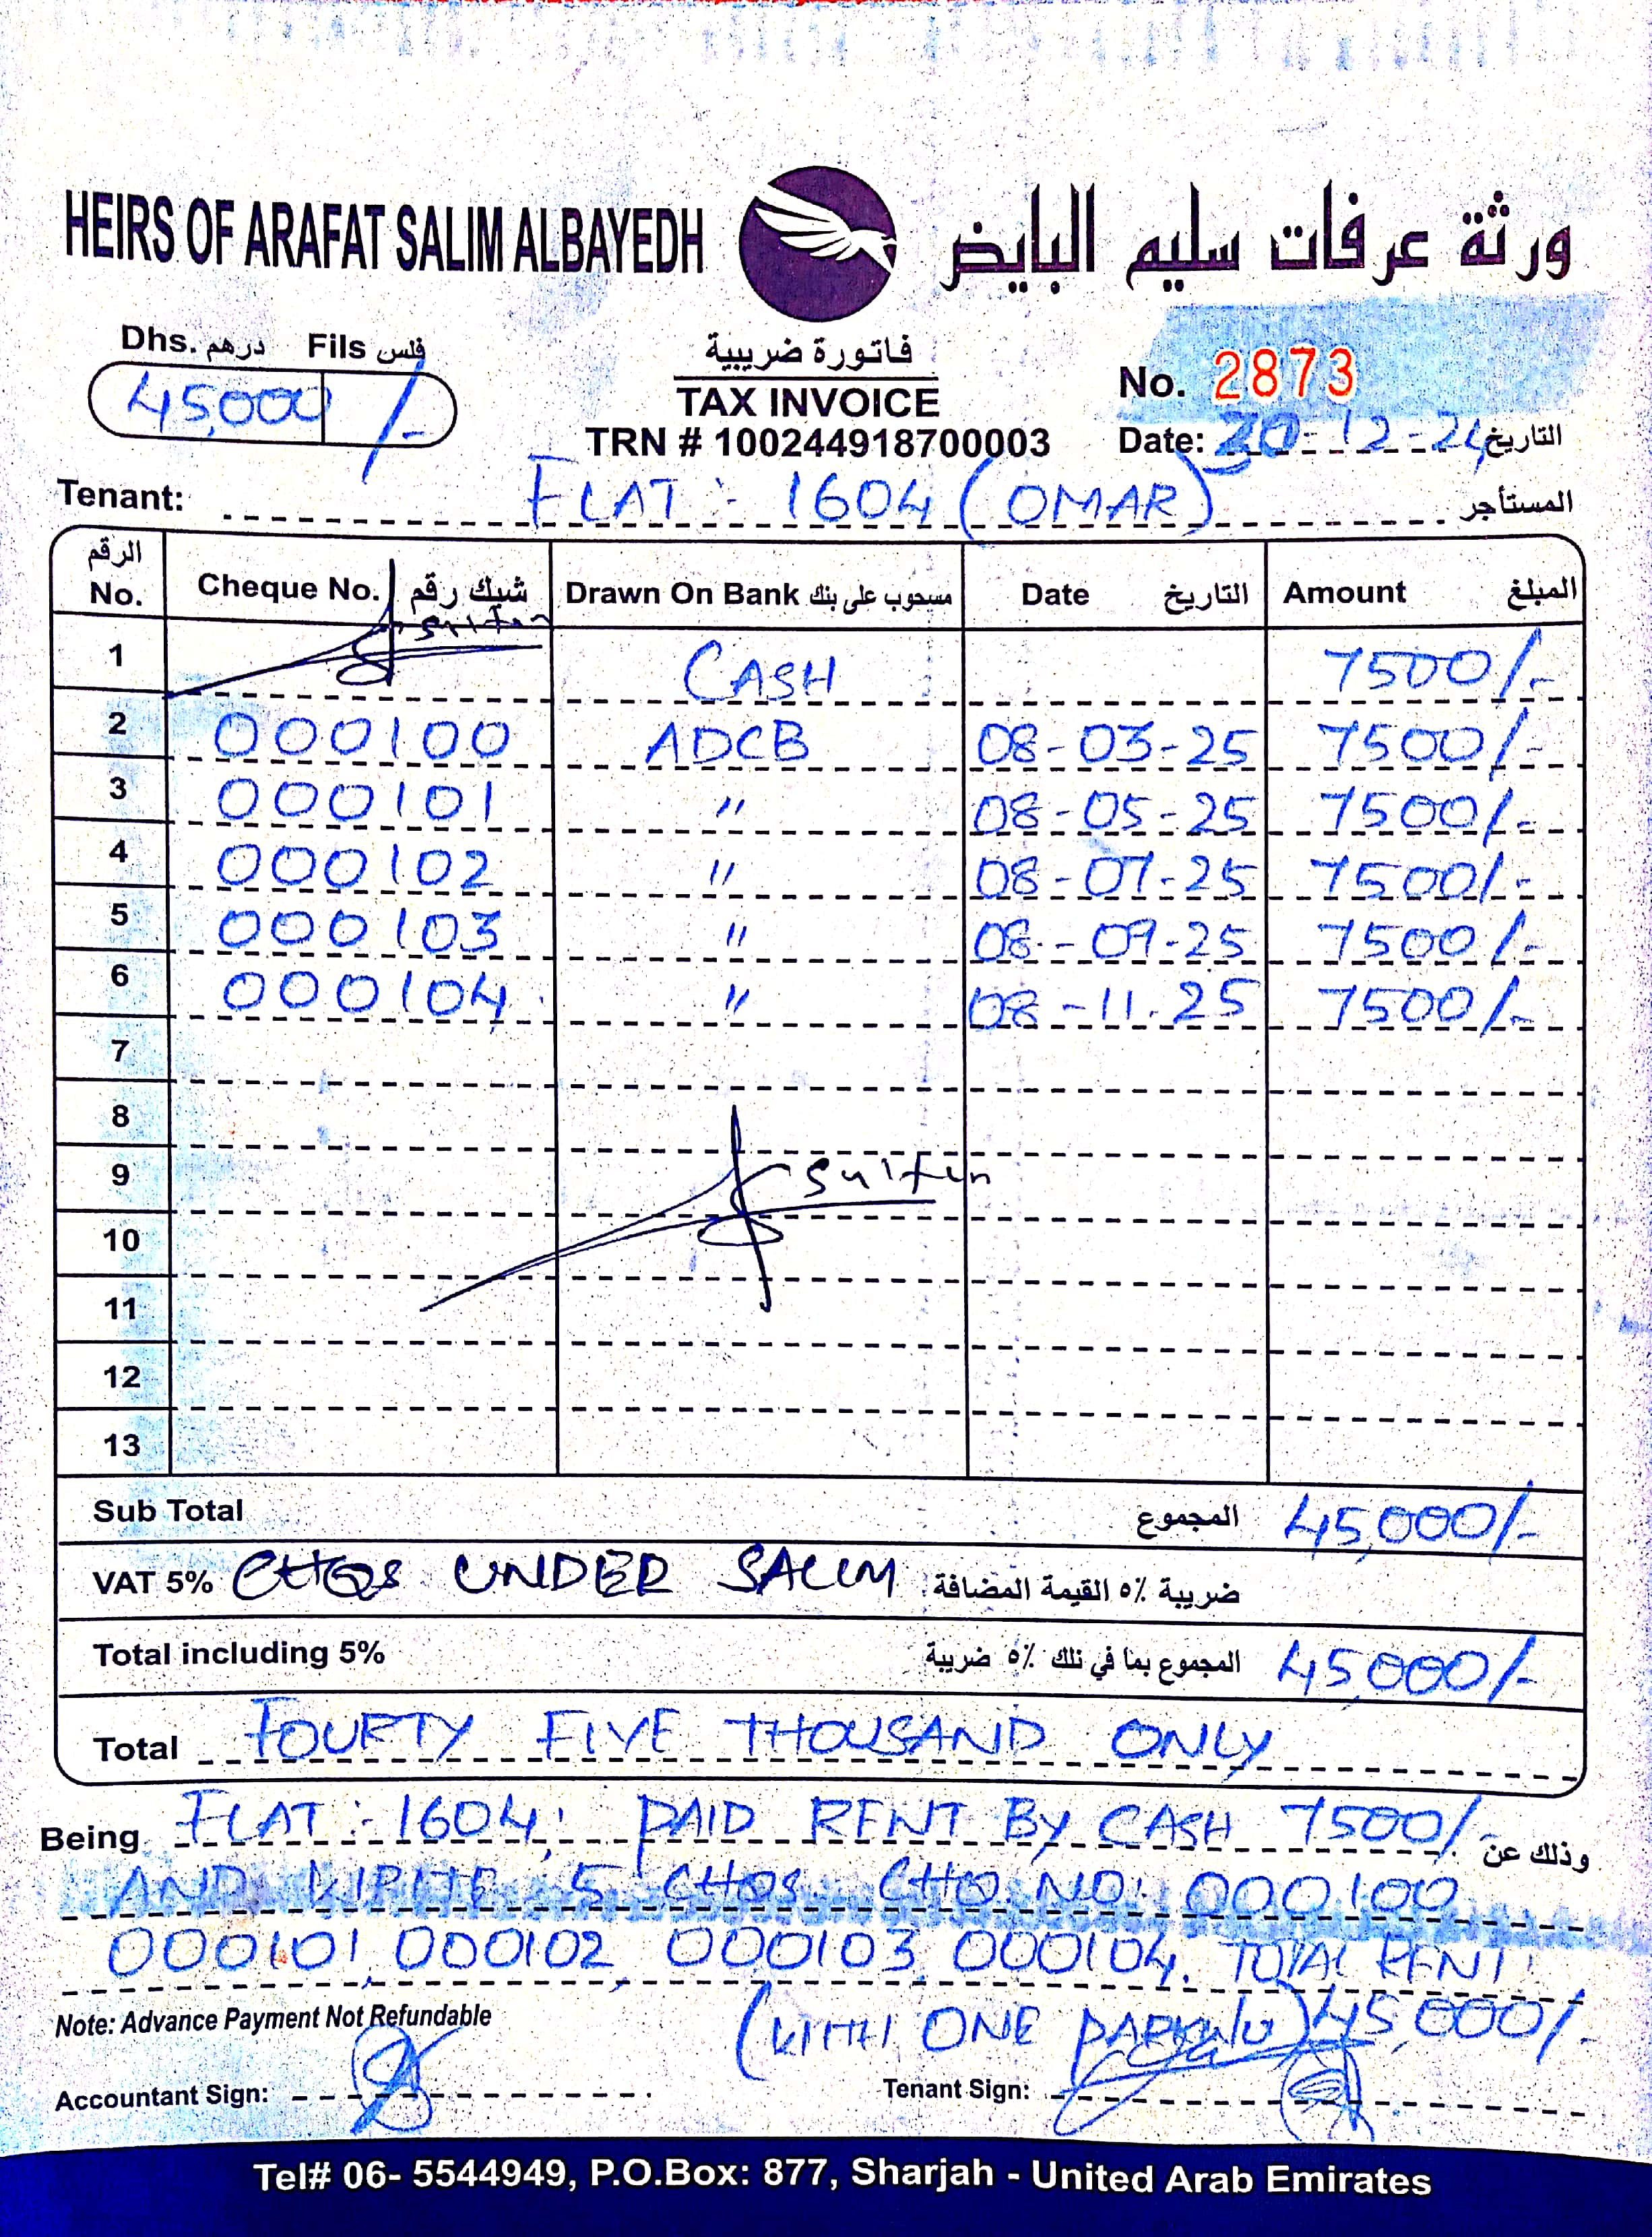 HEIRS OF ARAFAT SALIM ALBAYEDH ورثة عرفات سليم البايض
Dhs. درهم Fils فلس
45,000 /-
فاتورة ضريبية
TAX INVOICE
TRN # 100244918700003
No. 2873
Date: 30-12-24 التاريخ
Tenant: FLAT :- 1604 (OMAR) المستأجر
الرقم No. Cheque No. شيك رقم Drawn On Bank مسحوب على بنك Date التاريخ Amount المبلغ
1 Sultan CASH 7500/-
2 000100 ADCB 08-03-25 7500/-
3 000101 " 08-05-25 7500/-
4 000102 " 08-07-25 7500/-
5 000103 " 08-09-25 7500/-
6 000104 " 08-11-25 7500/-
7
8
9 Sultan
10
11
12
13
Sub Total المجموع 45,000/-
VAT 5% CHQS UNDER SALIM ضريبة ٥٪ القيمة المضافة
Total including 5% المجموع بما في ذلك ٥٪ ضريبة 45,000/-
Total FOURTY FIVE THOUSAND ONLY
Being FLAT :- 1604, PAID RENT BY CASH 7500/- وذلك عن
AND 5 CHQS. CHQ. NO: 000100
000101, 000102, 000103, 000104. TOTAL RENT:
Note: Advance Payment Not Refundable (WITH ONE PARKING) 45,000/-
Accountant Sign: Tenant Sign:
Tel# 06- 5544949, P.O.Box: 877, Sharjah - United Arab Emirates